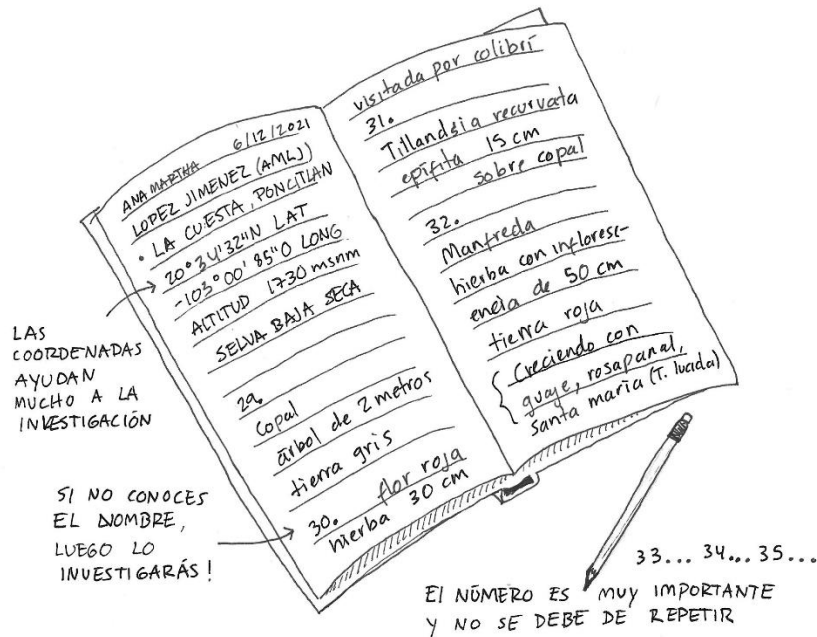 ANA MARTHA 6/12/2021
LOPEZ JIMENEZ (AMLJ)
• LA CUESTA, PONCITLAN
20°34'32"N LAT
-103°00'85"O LONG
ALTITUD 1730 msnm
SELVA BAJA SECA
29.
Copal
árbol de 2 metros
tierra gris
30. flor roja
hierba 30 cm
visitada por colibrí
31.
Tillandsia recurvata
epífita 15 cm
sobre copal
32.
Manfreda
hierba con inflores-
encia de 50 cm
tierra roja
Creciendo con
guaje, rosapanal,
santa maría (T. lucida)
LAS
COORDENADAS
AYUDAN
MUCHO A LA
INVESTIGACIÓN
SI NO CONOCES
EL NOMBRE,
LUEGO LO
INVESTIGARÁS!
33... 34... 35...
El NÚMERO ES MUY IMPORTANTE
Y NO SE DEBE DE REPETIR